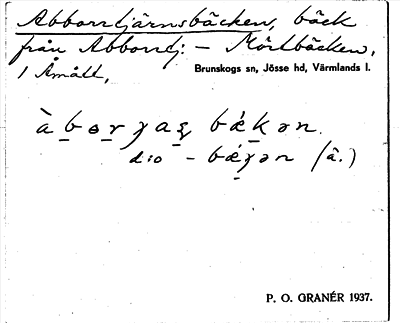 Abborrtjärnsbäcken, bäck
från Abborrtj: – Mörtbäcken,
i Åmått,
Brunskogs sn, Jösse hd, Värmlands l.
bǽkən
d:o – bǽɣən (â.)
P. O. GRANÉR 1937.